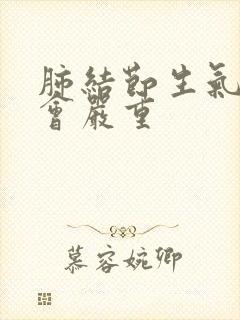 肺結節生氣
會嚴重
慕容婉卿